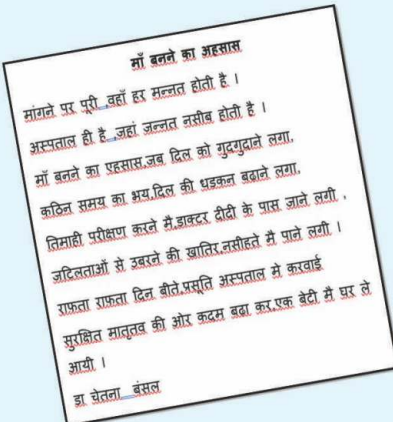 माँ बनने का अहसास
मांगने पर पूरी वहाँ हर मन्नत होती है ।
अस्पताल ही है जहां जन्नत नसीब होती है ।
माँ बनने का एहसास,जब दिल को गुदगुदाने लगा,
कठिन समय का भय,दिल की धडकन बढ़ाने लगा,
तिमाही परीक्षण करने मै,डाक्टर दीदी के पास जाने लगी ,
जटिलताओं से उबरने की खातिर,नसीहते मै पाने लगी ।
राफता राफता दिन बीते,प्रसूति अस्पताल मे करवाई
सुरक्षित मातृतव की ओर कदम बढा कर,एक बेटी मै घर ले
आयी ।
डा चेतना बंसल